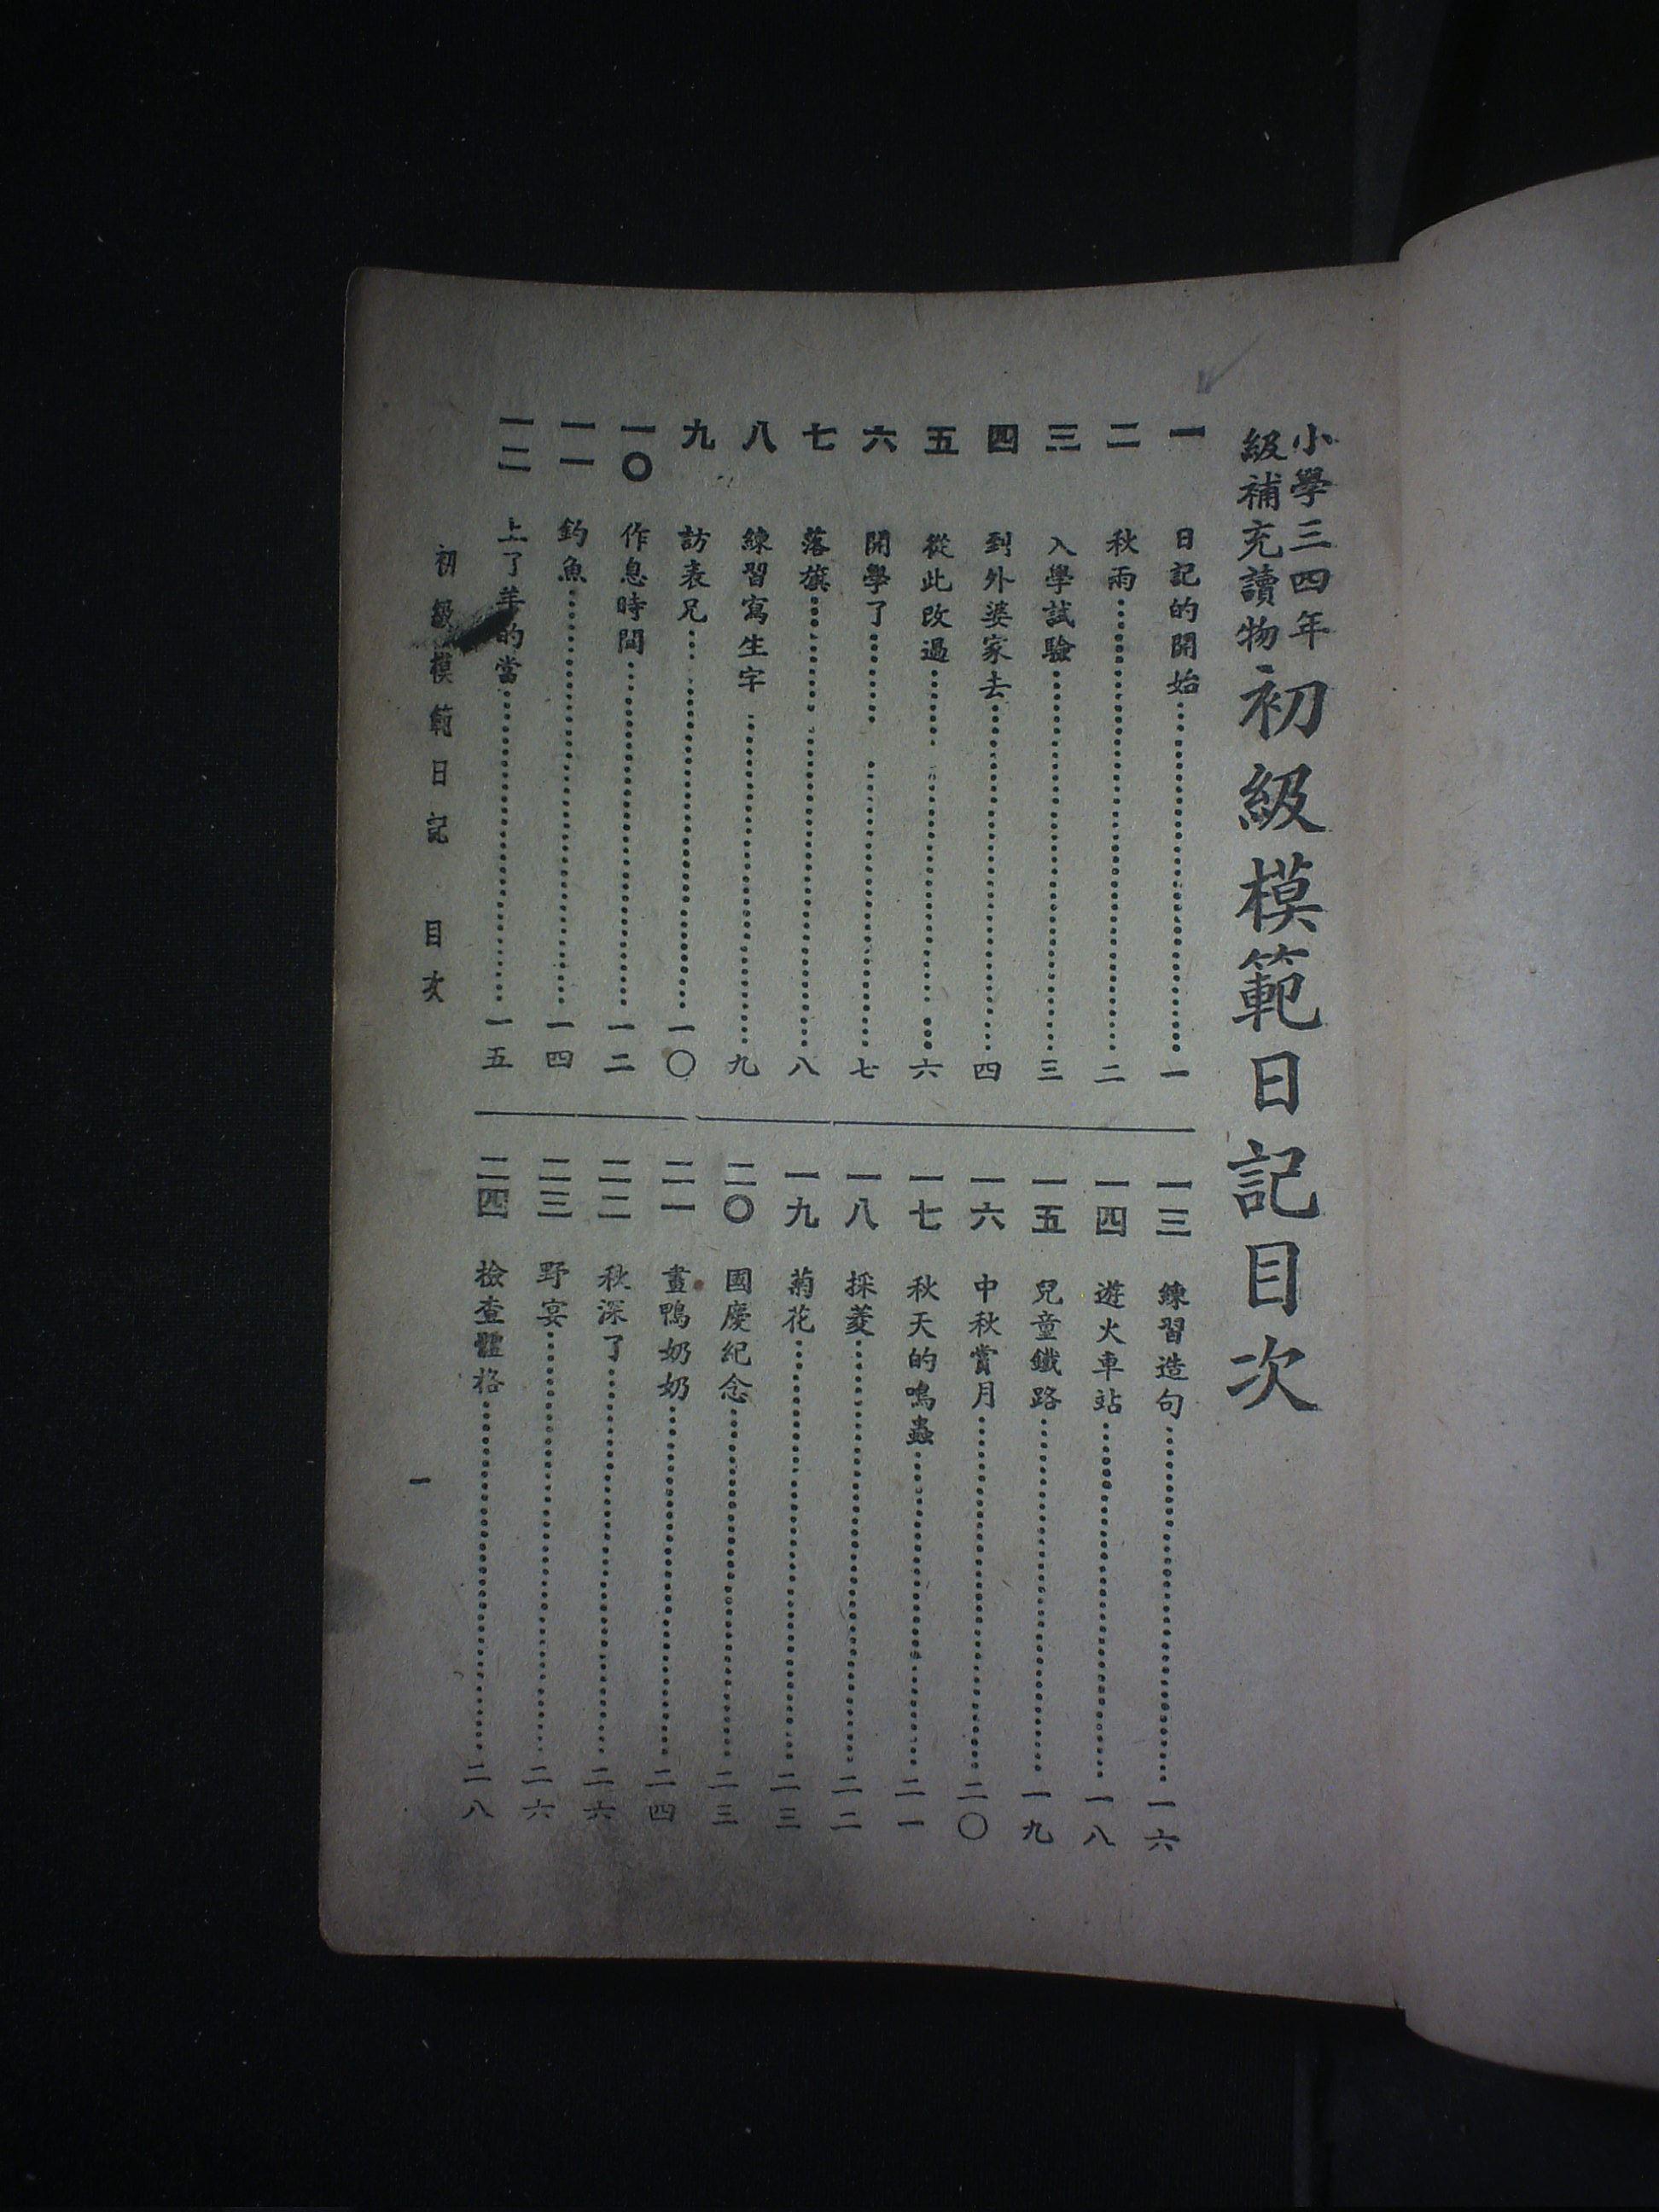 小學三四年
級補充讀物
初級模範日記目次
一 日記的開始……一
二 秋雨……二
三 入學試驗……三
四 到外婆家去……四
五 從此改過……六
六 開學了……七
七 落旗……八
八 練習寫生字……九
九 訪表兄……一〇
一〇 作息時間……一二
一一 釣魚……一四
一二 上了羊的當……一五
一三 練習造句……一六
一四 遊火車站……一八
一五 兒童鐵路……一九
一六 中秋賞月……二〇
一七 秋天的鳴蟲……二一
一八 採菱……二二
一九 菊花……二三
二〇 國慶紀念……二三
二一 畫鴨奶奶……二四
二二 秋深了……二六
二三 野宴……二六
二四 檢查體格……二八
初級模範日記 目次
一